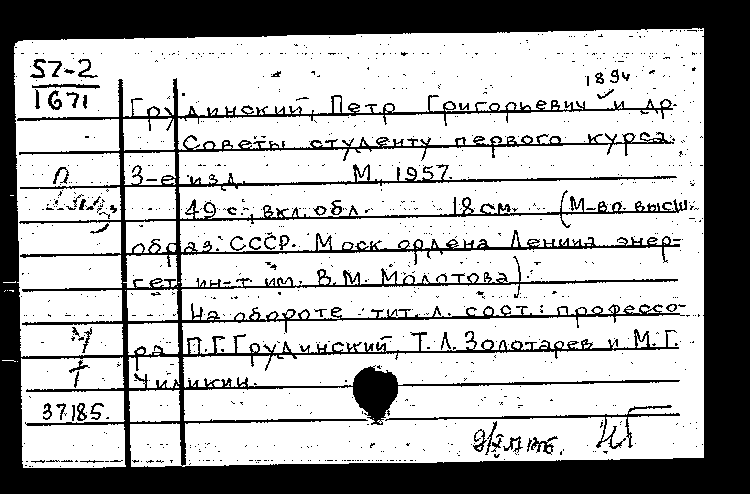 57-2
1671
1894
Грудинский, Петр Григорьевич и др.
Советы студенту первого курса.
3-е изд. М., 1957.
49 с., вкл. обл. 18 см. (М-во высш.
образ. СССР. Моск. ордена Ленина энер-
гет. ин-т им. В.М. Молотова).
На обороте тит. л. сост.: профессо-
ра П.Г. Грудинский, Т.Л. Золотарев и М.Г.
Чиликин.
37185.